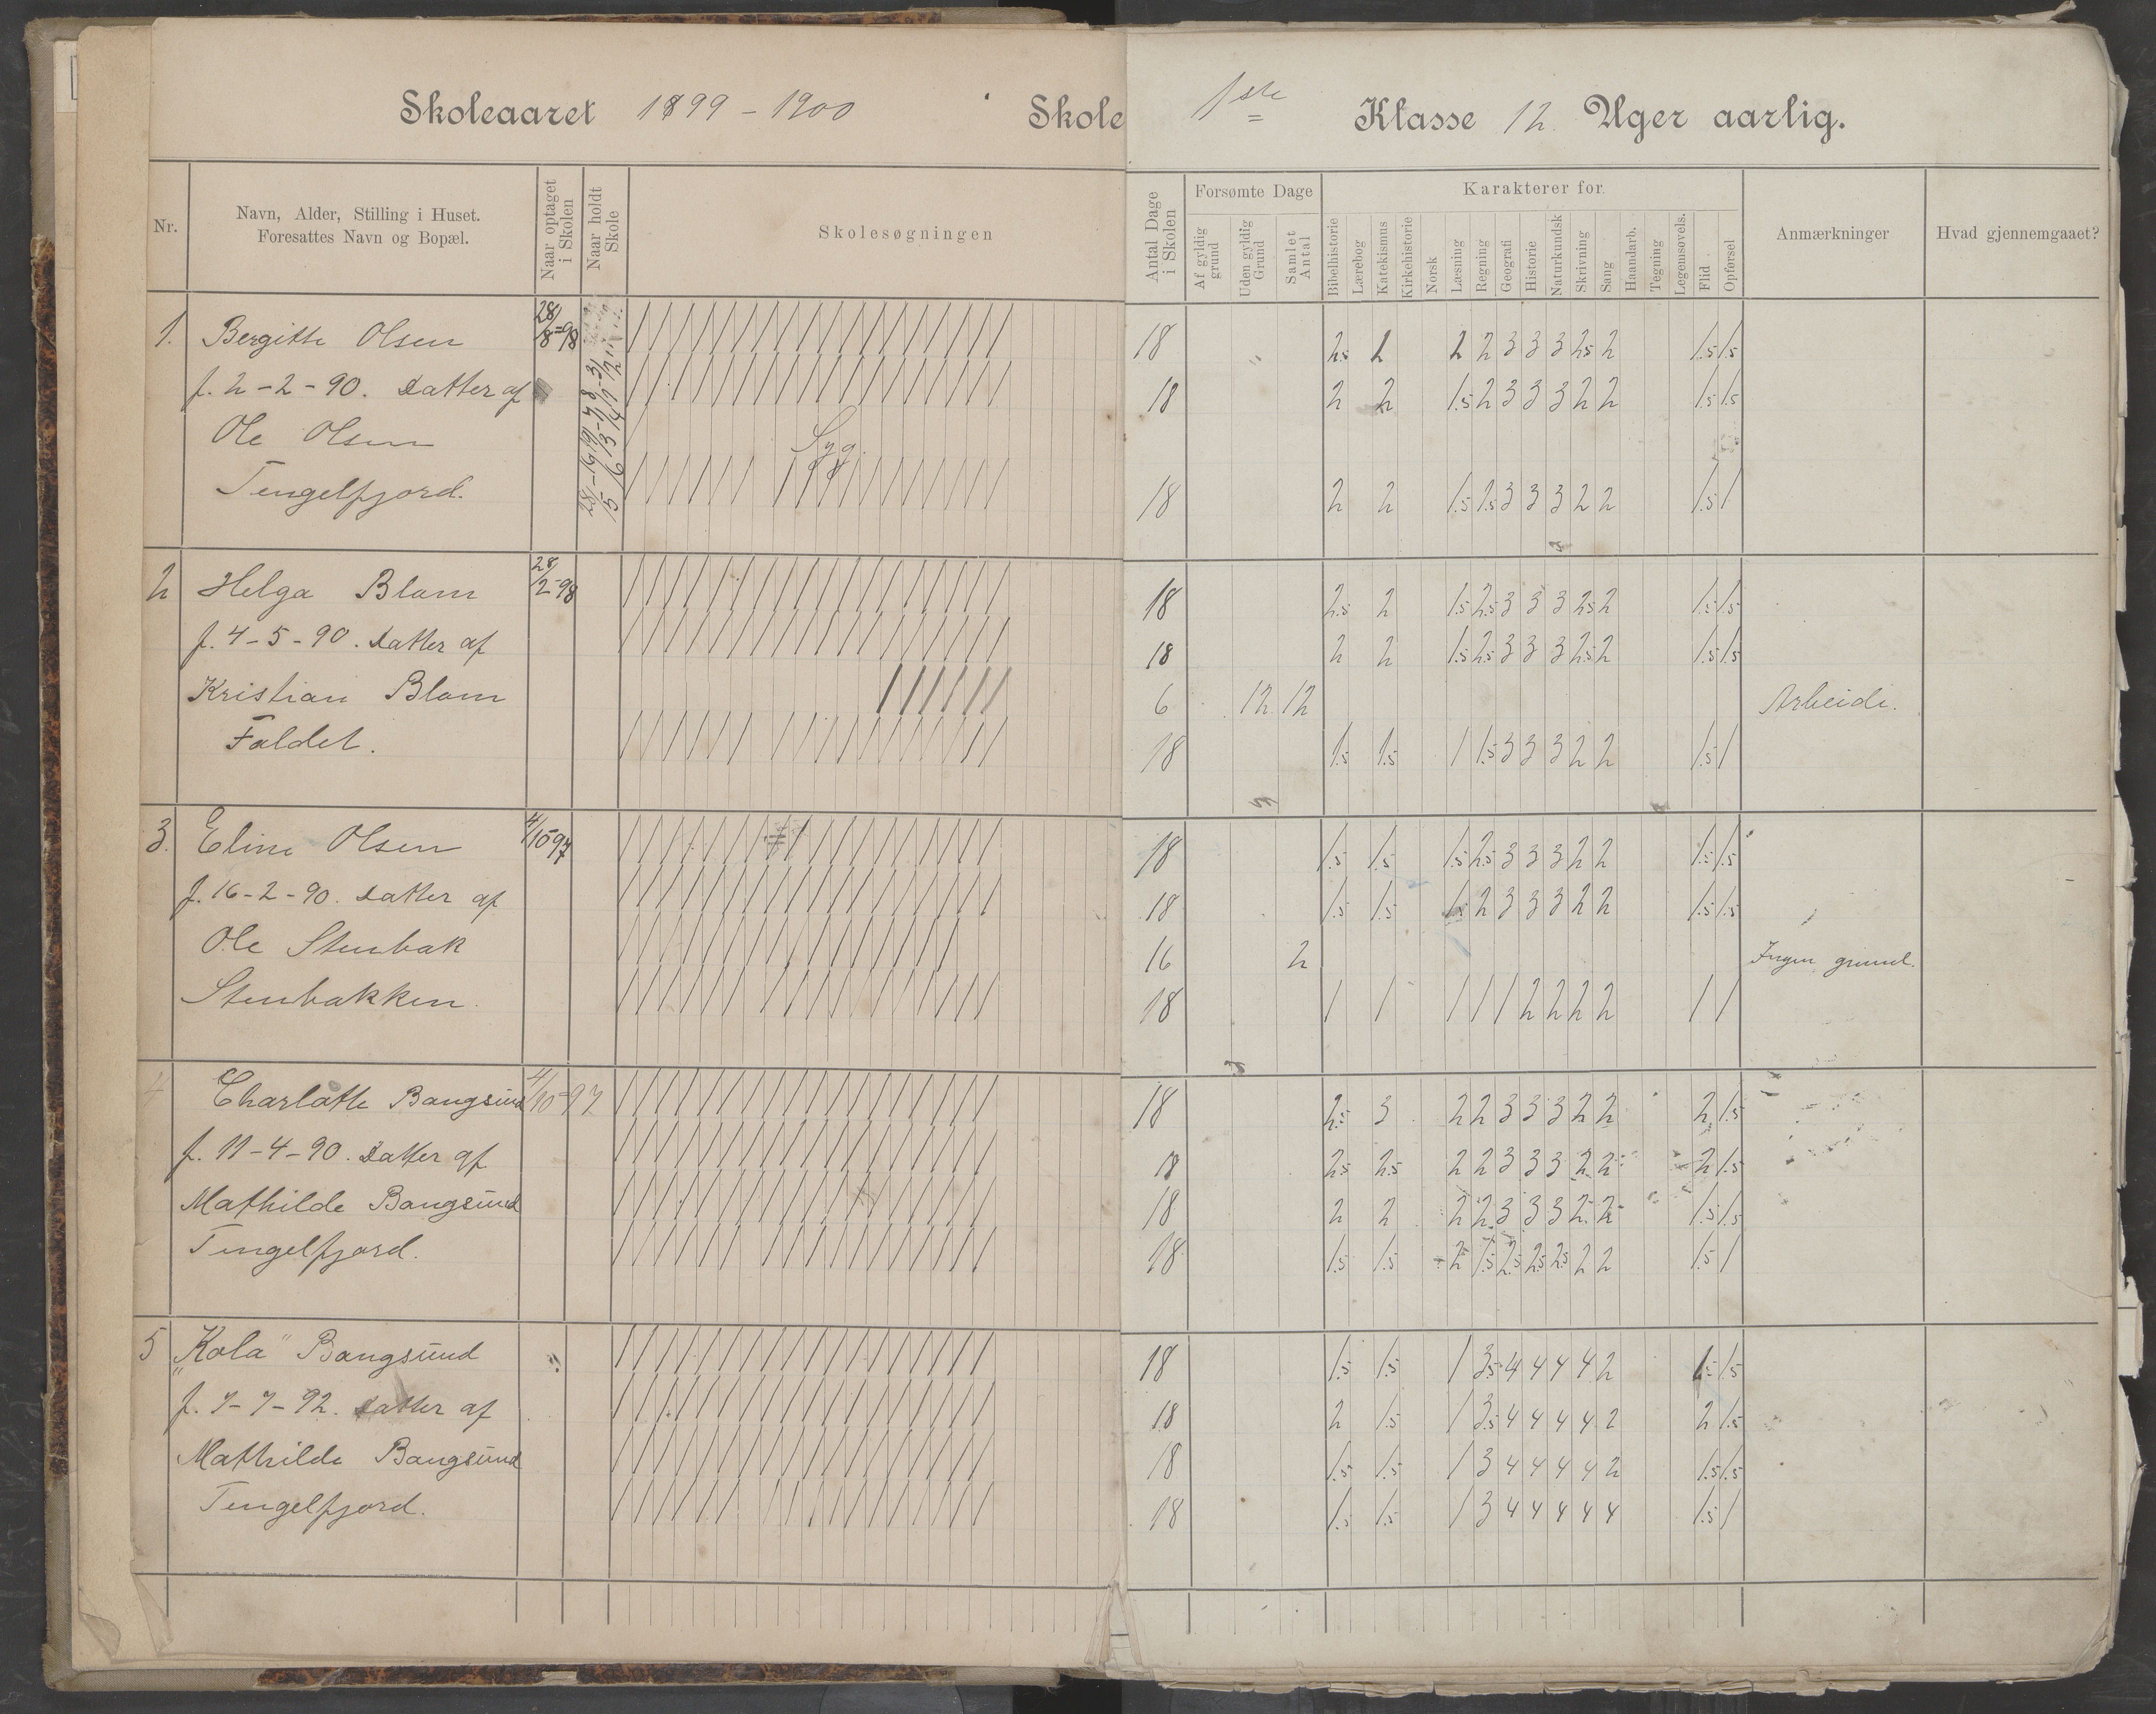 Skoleaaret 1899 - 1900 Skole 1ste Klasse 12 Uger aarlig.
Nr. Navn, Alder, Stilling i Huset. Foresattes Navn og Bopæl. Naar optaget i Skolen Naar holdt Skole Skolesøgningen Antal Dage i Skolen Forsømte Dage Af gyldig grund Uden gyldig Grund Samlet Antal Karakterer for Bibelhistorie Lærebog Katekismus Kirkehistorie Norsk Læsning Regning Geografi Historie Naturkundsk Skrivning Sang Haandarb. Tegning Legemsøvels. Flid Opførsel Anmærkninger Hvad gjennemgaaet?
1. Bergitte Olsen 28/8-98 18 2.5 2 2 2 3 3 3 2.5 2 1.5 1.5
f. 2-2-90. Datter af 18 2 2 1.5 2 3 3 3 2 2 1.5 1.5
Ole Olsen Syg
Tengelfjord. 18 2 2 1.5 1.5 3 3 3 2 2 1.5 1
2 Helga Blom 28/2-98 18 2.5 2 1.5 2.5 3 3 3 2.5 2 1.5 1.5
f. 4-5-90. Datter af 18 2 2 1.5 2.5 3 3 3 2.5 2 1.5 1.5
Kristian Blom 6 12 12 Arbeide.
Faldet. 18 1.5 1.5 1 1.5 3 3 3 2 2 1.5 1
3. Eline Olsen 4/10-97 18 1.5 1.5 1.5 2.5 3 3 3 2 2 1.5 1.5
f. 16-2-90. Datter af 18 1.5 1.5 1.5 2 3 3 3 2 2 1.5 1.5
Ole Stenbak 16 2 Ingen grund.
Stenbakken. 18 1 1 1 1 1 2 2 2 2 1 1
4 Charlotte Bangsund 4/10-97 18 2.5 3 2 2 3 3 3 2 2 2 1.5
f. 11-4-90. Datter af 18 2.5 2.5 2 2 3 3 3 2 2 2 1.5
Mathilde Bangsund 18 2 2 2 2 3 3 3 2 2 1.5 1.5
Tengelfjord. 18 1.5 1.5 2 1.5 2.5 2.5 2.5 2 2 1.5 1
5 "Kola" Bangsund 18 1.5 1.5 1 3.5 4 4 4 4 2 1.5 1.5
f. 7-7-92. Datter af 18 2 1.5 1 3.5 4 4 4 4 2 2 1.5
Mathilde Bangsund 18 1.5 1.5 1 3 4 4 4 4 2 1.5 1.5
Tengelfjord. 18 1.5 1.5 1 3 4 4 4 4 4 1.5 1